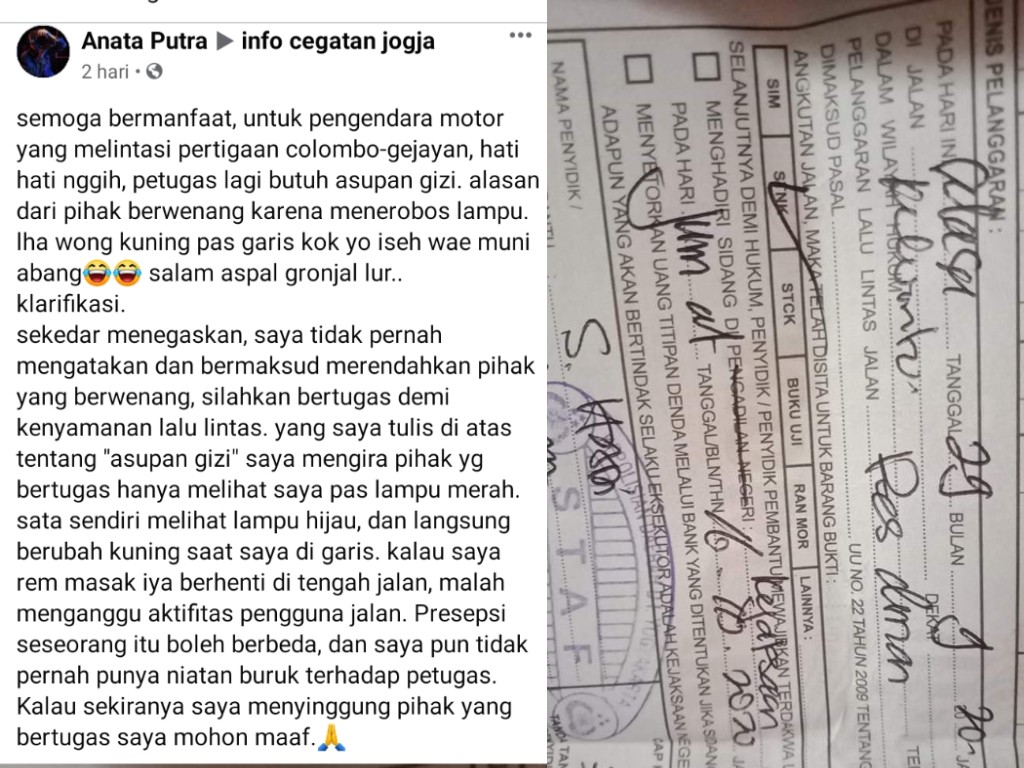 Anata Putra ▶ info cegatan jogja
2 hari
semoga bermanfaat, untuk pengendara motor
yang melintasi pertigaan colombo-gejayan, hati
hati nggih, petugas lagi butuh asupan gizi. alasan
dari pihak berwenang karena menerobos lampu.
lha wong kuning pas garis kok yo iseh wae muni
abang😂😂 salam aspal gronjal lur..
klarifikasi.
sekedar menegaskan, saya tidak pernah
mengatakan dan bermaksud merendahkan pihak
yang berwenang, silahkan bertugas demi
kenyamanan lalu lintas. yang saya tulis di atas
tentang "asupan gizi" saya mengira pihak yg
bertugas hanya melihat saya pas lampu merah.
sata sendiri melihat lampu hijau, dan langsung
berubah kuning saat saya di garis. kalau saya
rem masak iya berhenti di tengah jalan, malah
menganggu aktifitas pengguna jalan. Presepsi
seseorang itu boleh berbeda, dan saya pun tidak
pernah punya niatan buruk terhadap petugas.
Kalau sekiranya saya menyinggung pihak yang
bertugas saya mohon maaf.🙏
JENIS PELANGGARAN :
PADA HARI INI Selasa TANGGAL 29 BULAN 9 20
DI JALAN DEKAT
DALAM WILAYAH HUKUM
PELANGGARAN LALU LINTAS JALAN UU NO. 22 TAHUN 2009 TENTANG
DIMAKSUD PASAL
ANGKUTAN JALAN, MAKA TELAH DISITA UNTUK BARANG BUKTI :
SIM STNK STCK BUKU UJI RAN MOR LAINNYA :
SELANJUTNYA DEMI HUKUM, PENYIDIK / PENYIDIK PEMBANTU MEWAJIBKAN TERDAKWA
MENGHADIRI SIDANG DI PENGADILAN NEGERI :
PADA HARI Jum at TANGGAL/BLN/THN 16 - 10 - 2020
MENYETORKAN UANG TITIPAN DENDA MELALUI BANK YANG DITENTUKAN JIKA
ADAPUN YANG AKAN BERTINDAK SELAKU EKSEKUTOR ADALAH KEJAKSAAN
NAMA PENYIDIK /
STAF